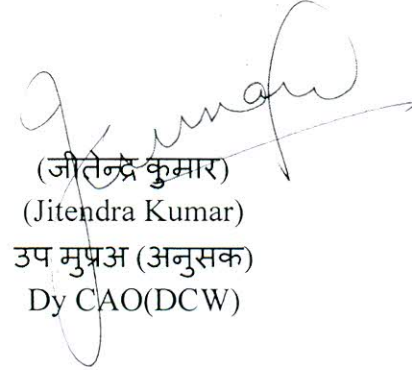 J Kumar
(जीतेन्द्र कुमार)
(Jitendra Kumar)
उप मुप्रअ (अनुसक)
Dy CAO(DCW)